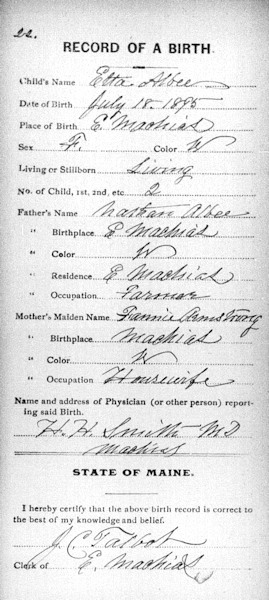 22.
RECORD OF A BIRTH.
Child's Name Etta Albee
Date of Birth July 18. 1895
Place of Birth E Machias
Sex F. Color W
Living or Stillborn Living
No. of Child, 1st, 2nd, etc 2
Father's Name Nathan Albee
" Birthplace E Machias
" Color W
" Residence E Machias
" Occupation Farmer
Mother's Maiden Name Fannie Armstrong
" Birthplace Machias
" Color W
" Occupation Housewife
Name and address of Physician (or other person) report-
ing said Birth.
H. H. Smith MD
Machias
STATE OF MAINE.
I hereby certify that the above birth record is correct to
the best of my knowledge and belief.
J. C. Talbot
Clerk of E. Machias